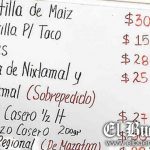 tilla de Maiz $30
illa P/ Taco $15
as $28
a de Nixtamal y $25
rmal (Sobrepedido)
Casero ½ lt $27
zo Casero 200gr
Regional (De Mazatan)
El Bu